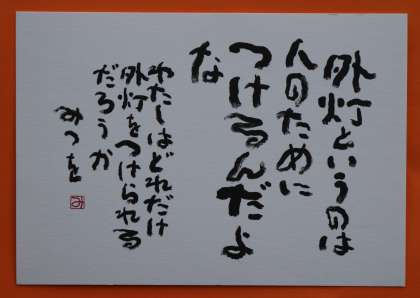 外灯というのは
人のために
つけるんだよ
な
わたしはどれだけ
外灯をつけられる
だろうか
みつを
み